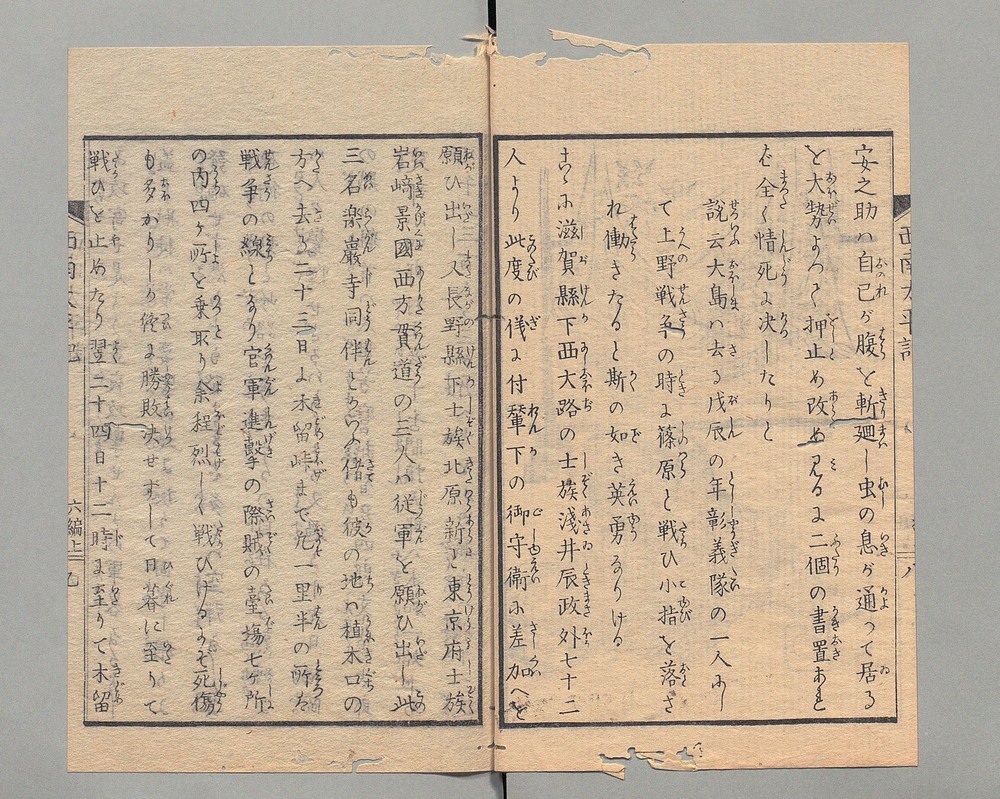 安之助ハ自己が腹を斬廻し虫の息が通つて居る
を大勢よつて押止め改め見るに二個の書置あれ
ば全く情死に决したりと
説云大島ハ去る戊辰の年彰義隊の一人にし
て上野戦争の時に篠原と戦ひ小指を落さ
れ働きたると斯の如き英勇なりける
こゝに滋賀縣下西大路の士族淺井辰政外七十二
人より此度の儀に付輦下の御守衛に差加へを
願ひ出し又長野縣下士族北原新と東京府士族
岩﨑景國西方貫道の三人ハ従軍を願ひ出し此
三名楽巖寺同伴と
方へ去る二十三日より木留峠まで凡一里半の所を
戦争の線となり官軍進擊の際賊の臺塲七ケ所
の内四ケ所を乗取り余程烈しく戦ひけるよそ死傷
も多かりしが終に勝敗决せずして日暮に至りて
戦ひを止めたり翌二十四日十二時に至りて木留
西南太平記
六編上
九
八